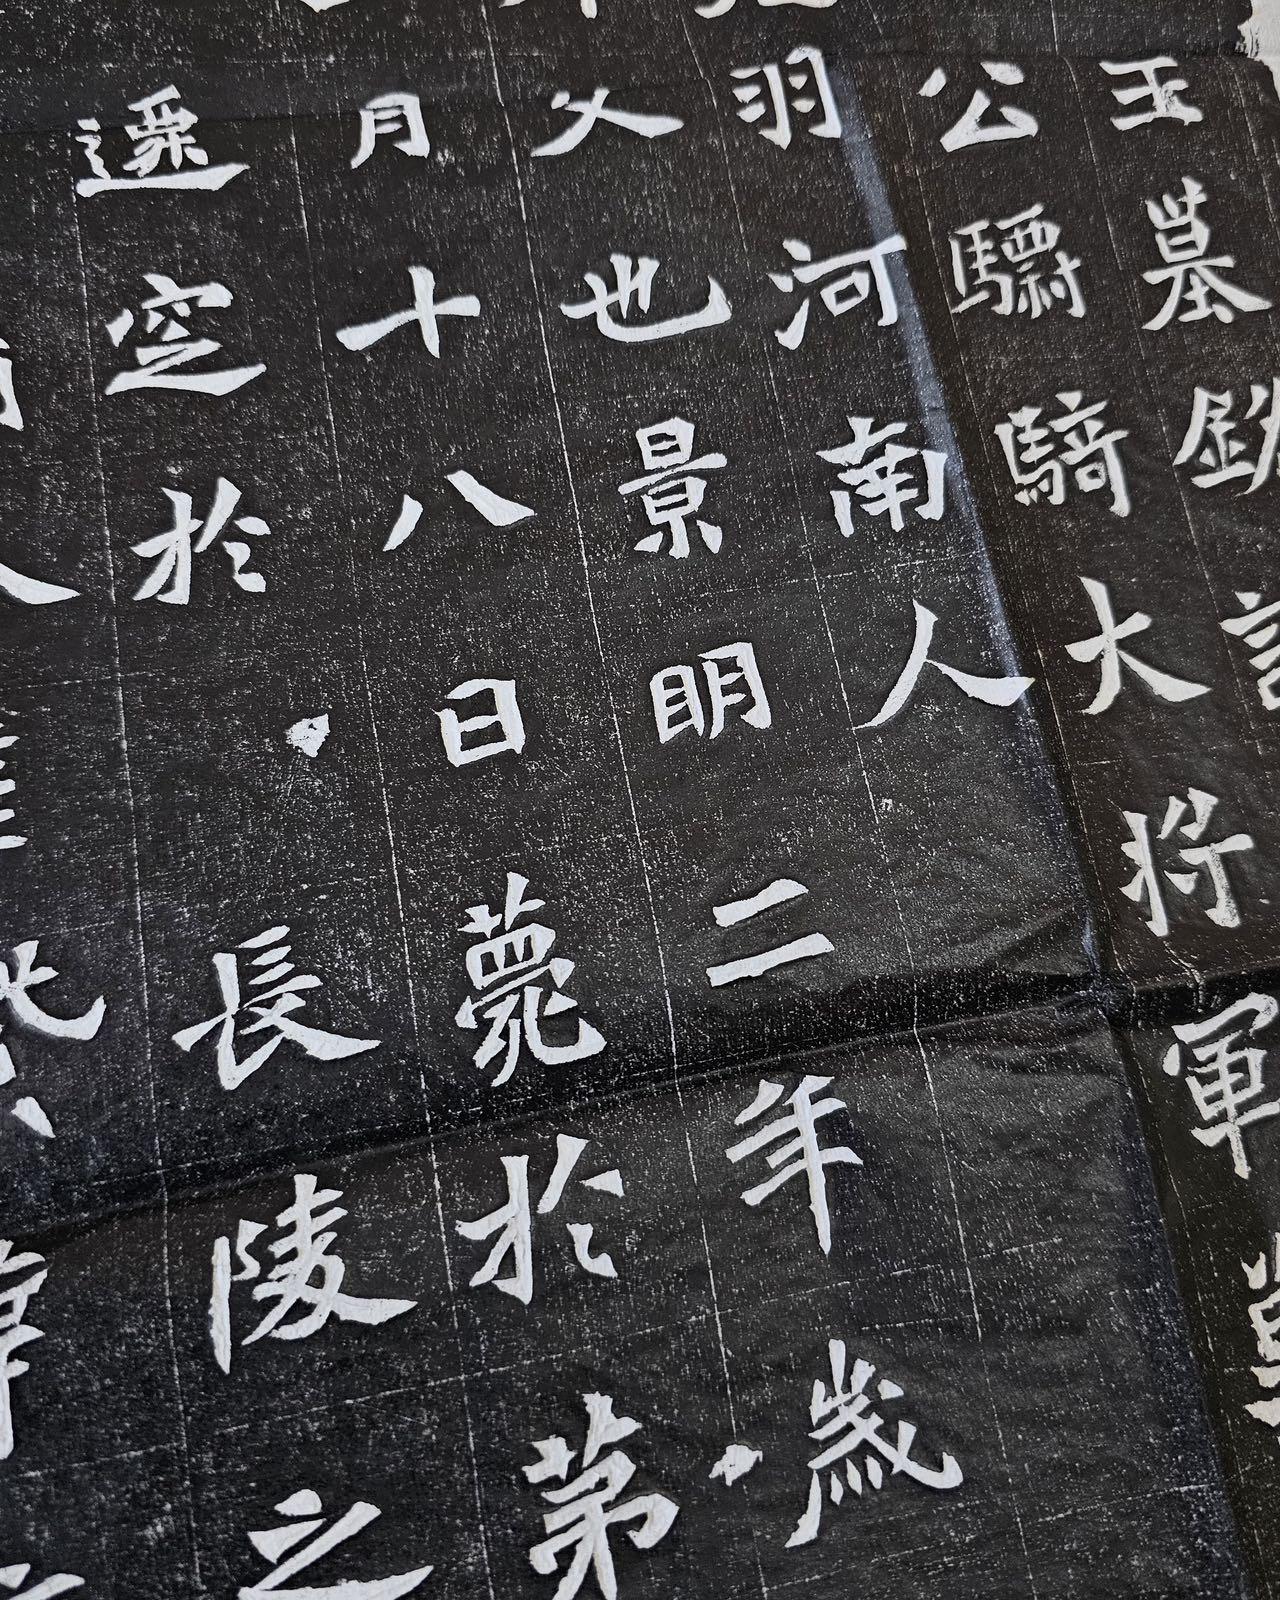 王墓
公驃騎大將軍
羽河南人
父也景明二年歲
月十八日薨於第
遷窆於長陵之